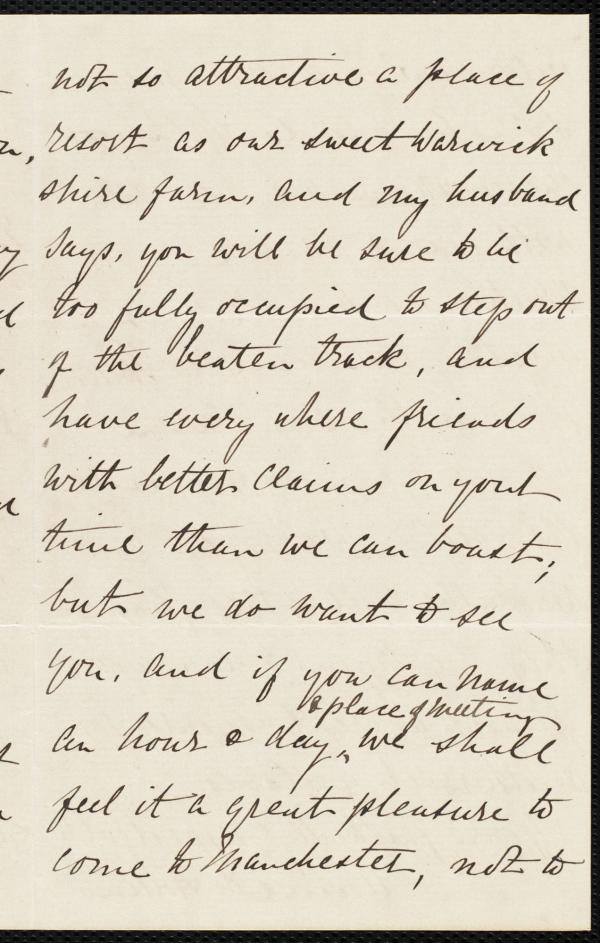 not so attractive a place of
resort as our sweet Warwick
shire farm, and my husband
says, you will be sure to be
too fully occupied to step out
of the beaten track, and
have every where friends
with better claims on your
time than we can boast;
but we do want to see
you, and if you can name
& place of meeting
an hour & day, we shall
feel it a great pleasure to
come to Manchester, not to